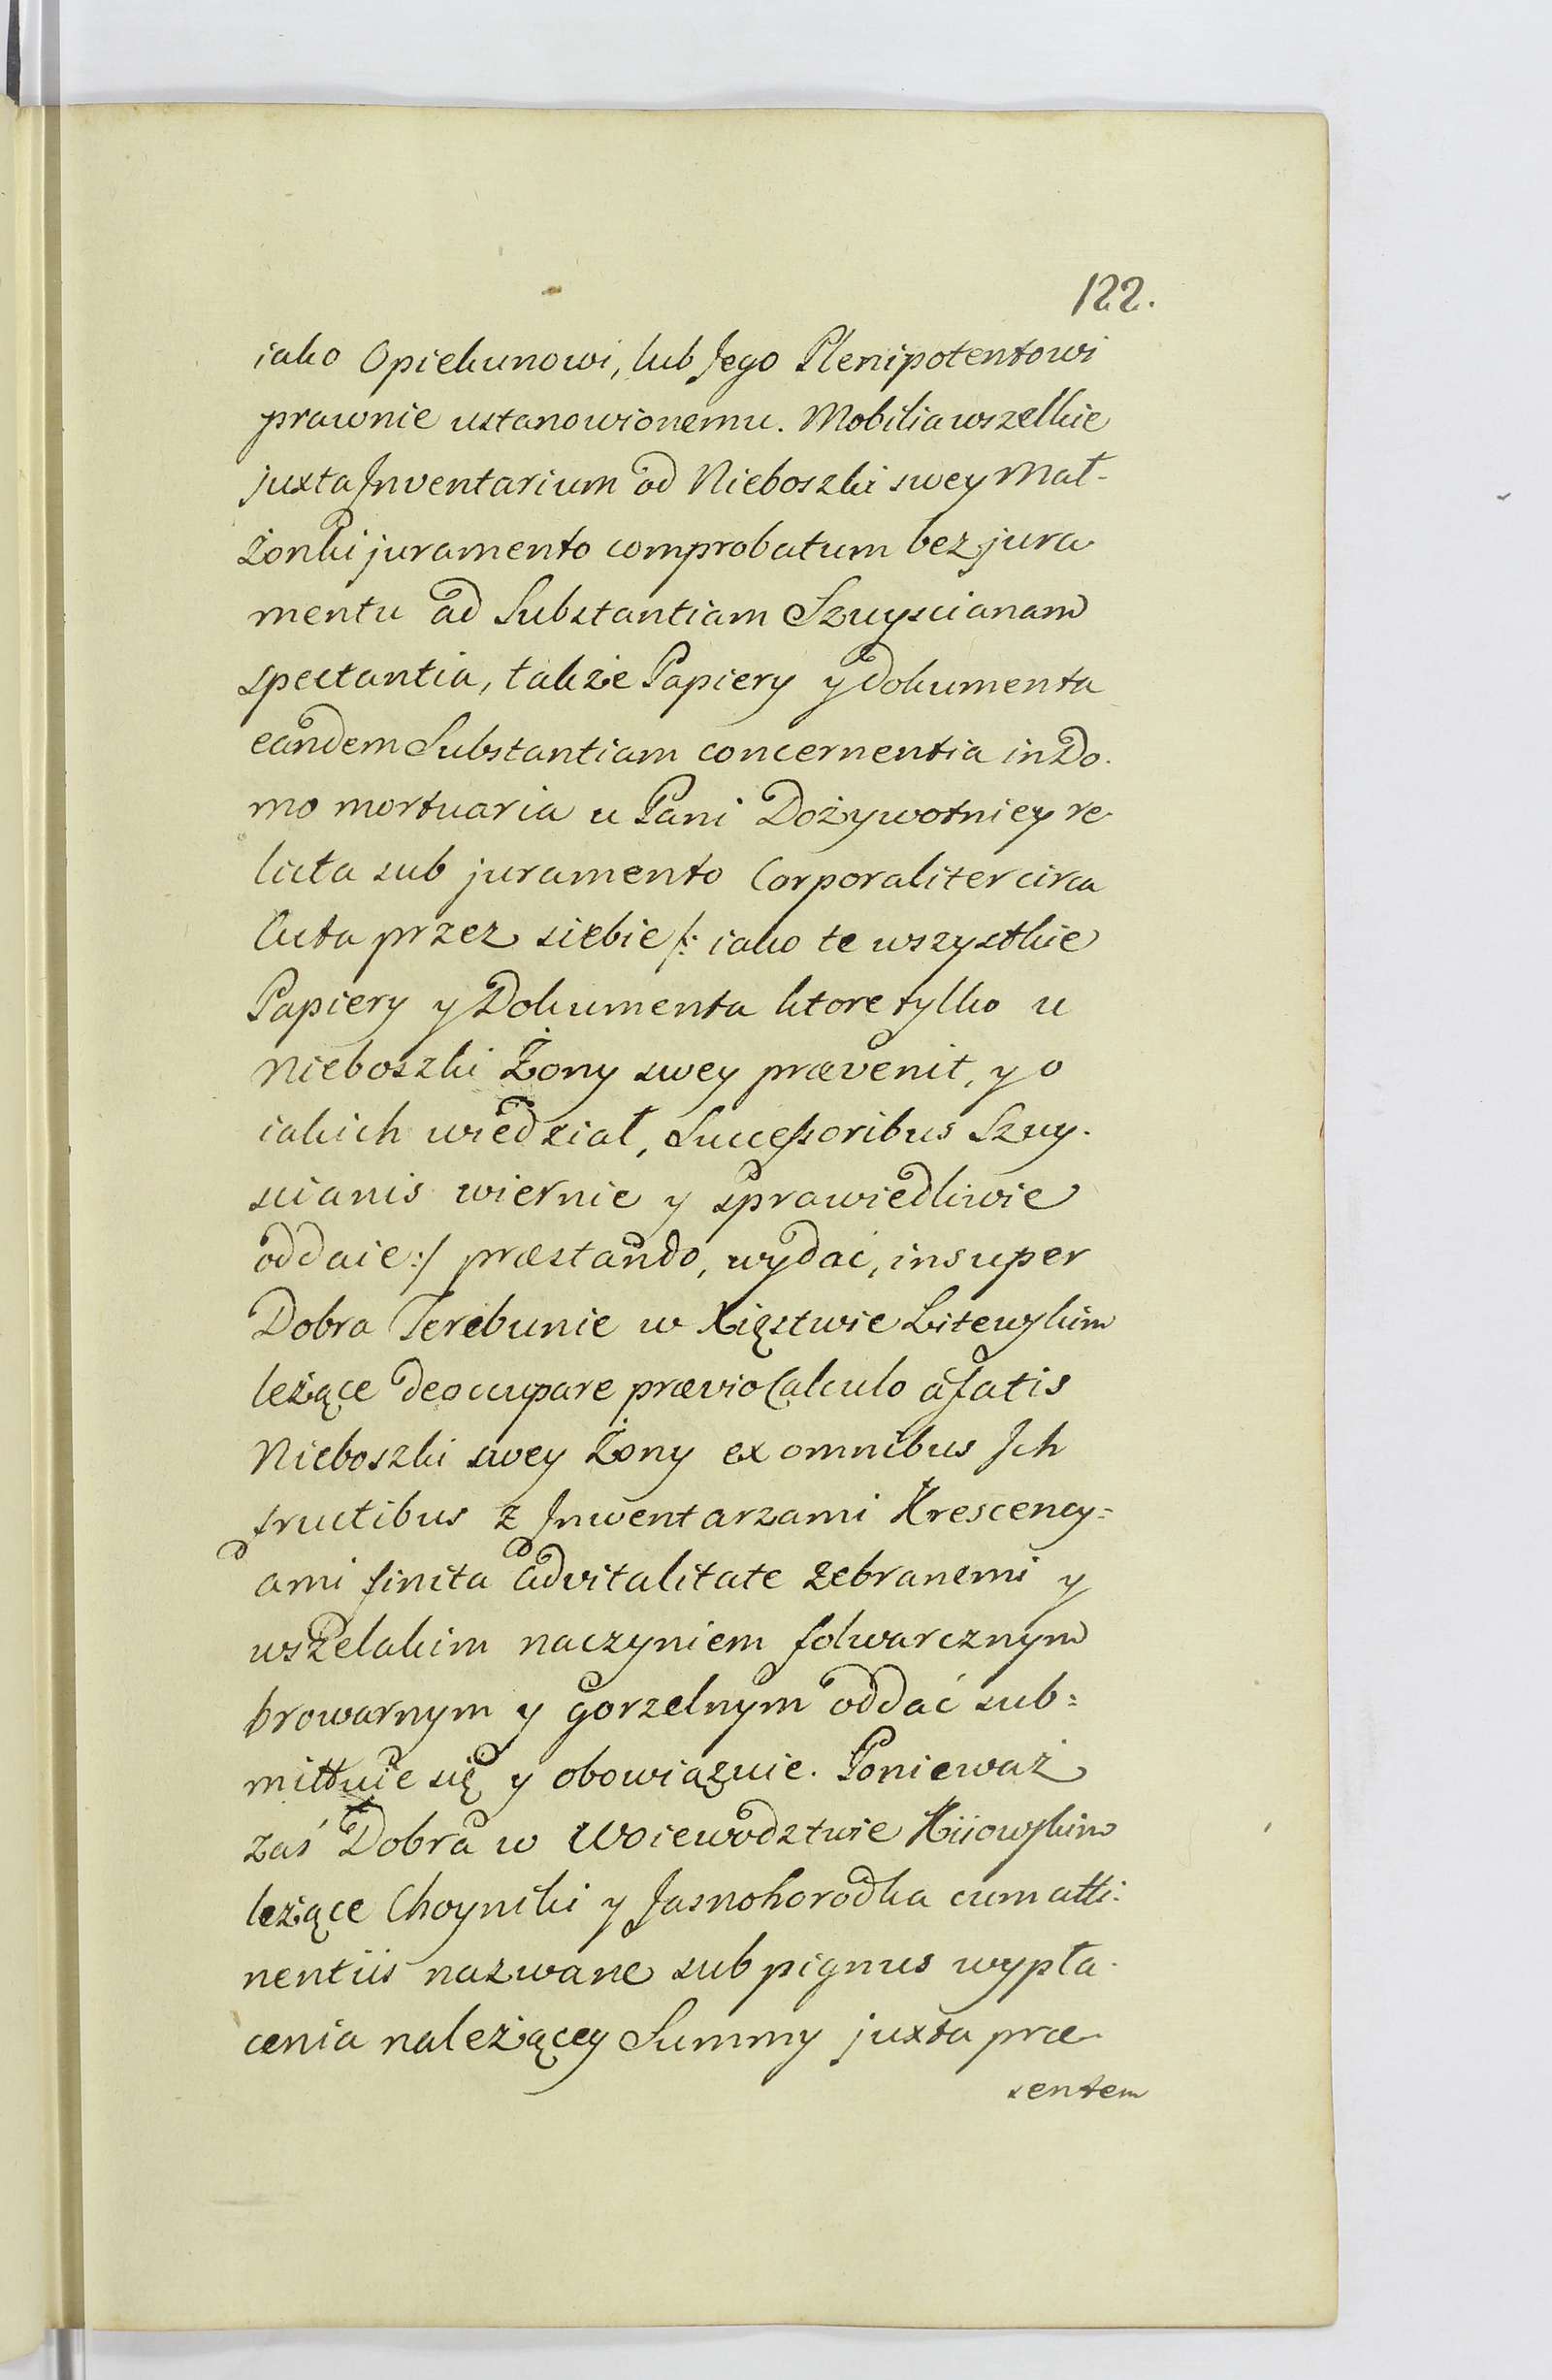 122.
iako Opiekunowi, lub Jego Plenipotentowi
prawnie ustanowionemu. Mobilia wszelkie
juxta Jnventarium od Nieboszki swey Mał-
żonki juramento comprobatum bez jura
mentu ad Substantiam Szuyscianam
spectantia, także Papiery y Dokumenta
eandem Substantiam concernentia in Do.
mo mortuaria u Pani Dożywotniey re
licta sub juramento Corporaliter circa
Acta przez siebie /: iako te wszystkie
Papiery y Dokumenta ktore tylko u
Nieboszki Żony swey prævenit, y o
iakich wiedział, Successoribus Szuy.
scianis wiernie y sprawiedliwie
oddaie :/ præstando, wydać, insuper
Dobra Terebunie w Xięstwie Litewskim
leżące deoccupare prævio Calculo à fatis
Nieboszki swey Żony ex omnibus Jch
fructibus z Jnwentarzami Krescency=
ami finita advitalitate zebranemi y
wszelakim naczyniem folwarcznym
browarnym y gorzelnym oddać sub=
mittuie się y obowiązuie. Ponieważ
zaś Dobra w Woiewodztwie Kiiowskim
leżące Choyniki y Jasnohorodka cum atti.
nentiis nazwane sub pignus wypła.
cenia należącey Summy juxta præ
sentem